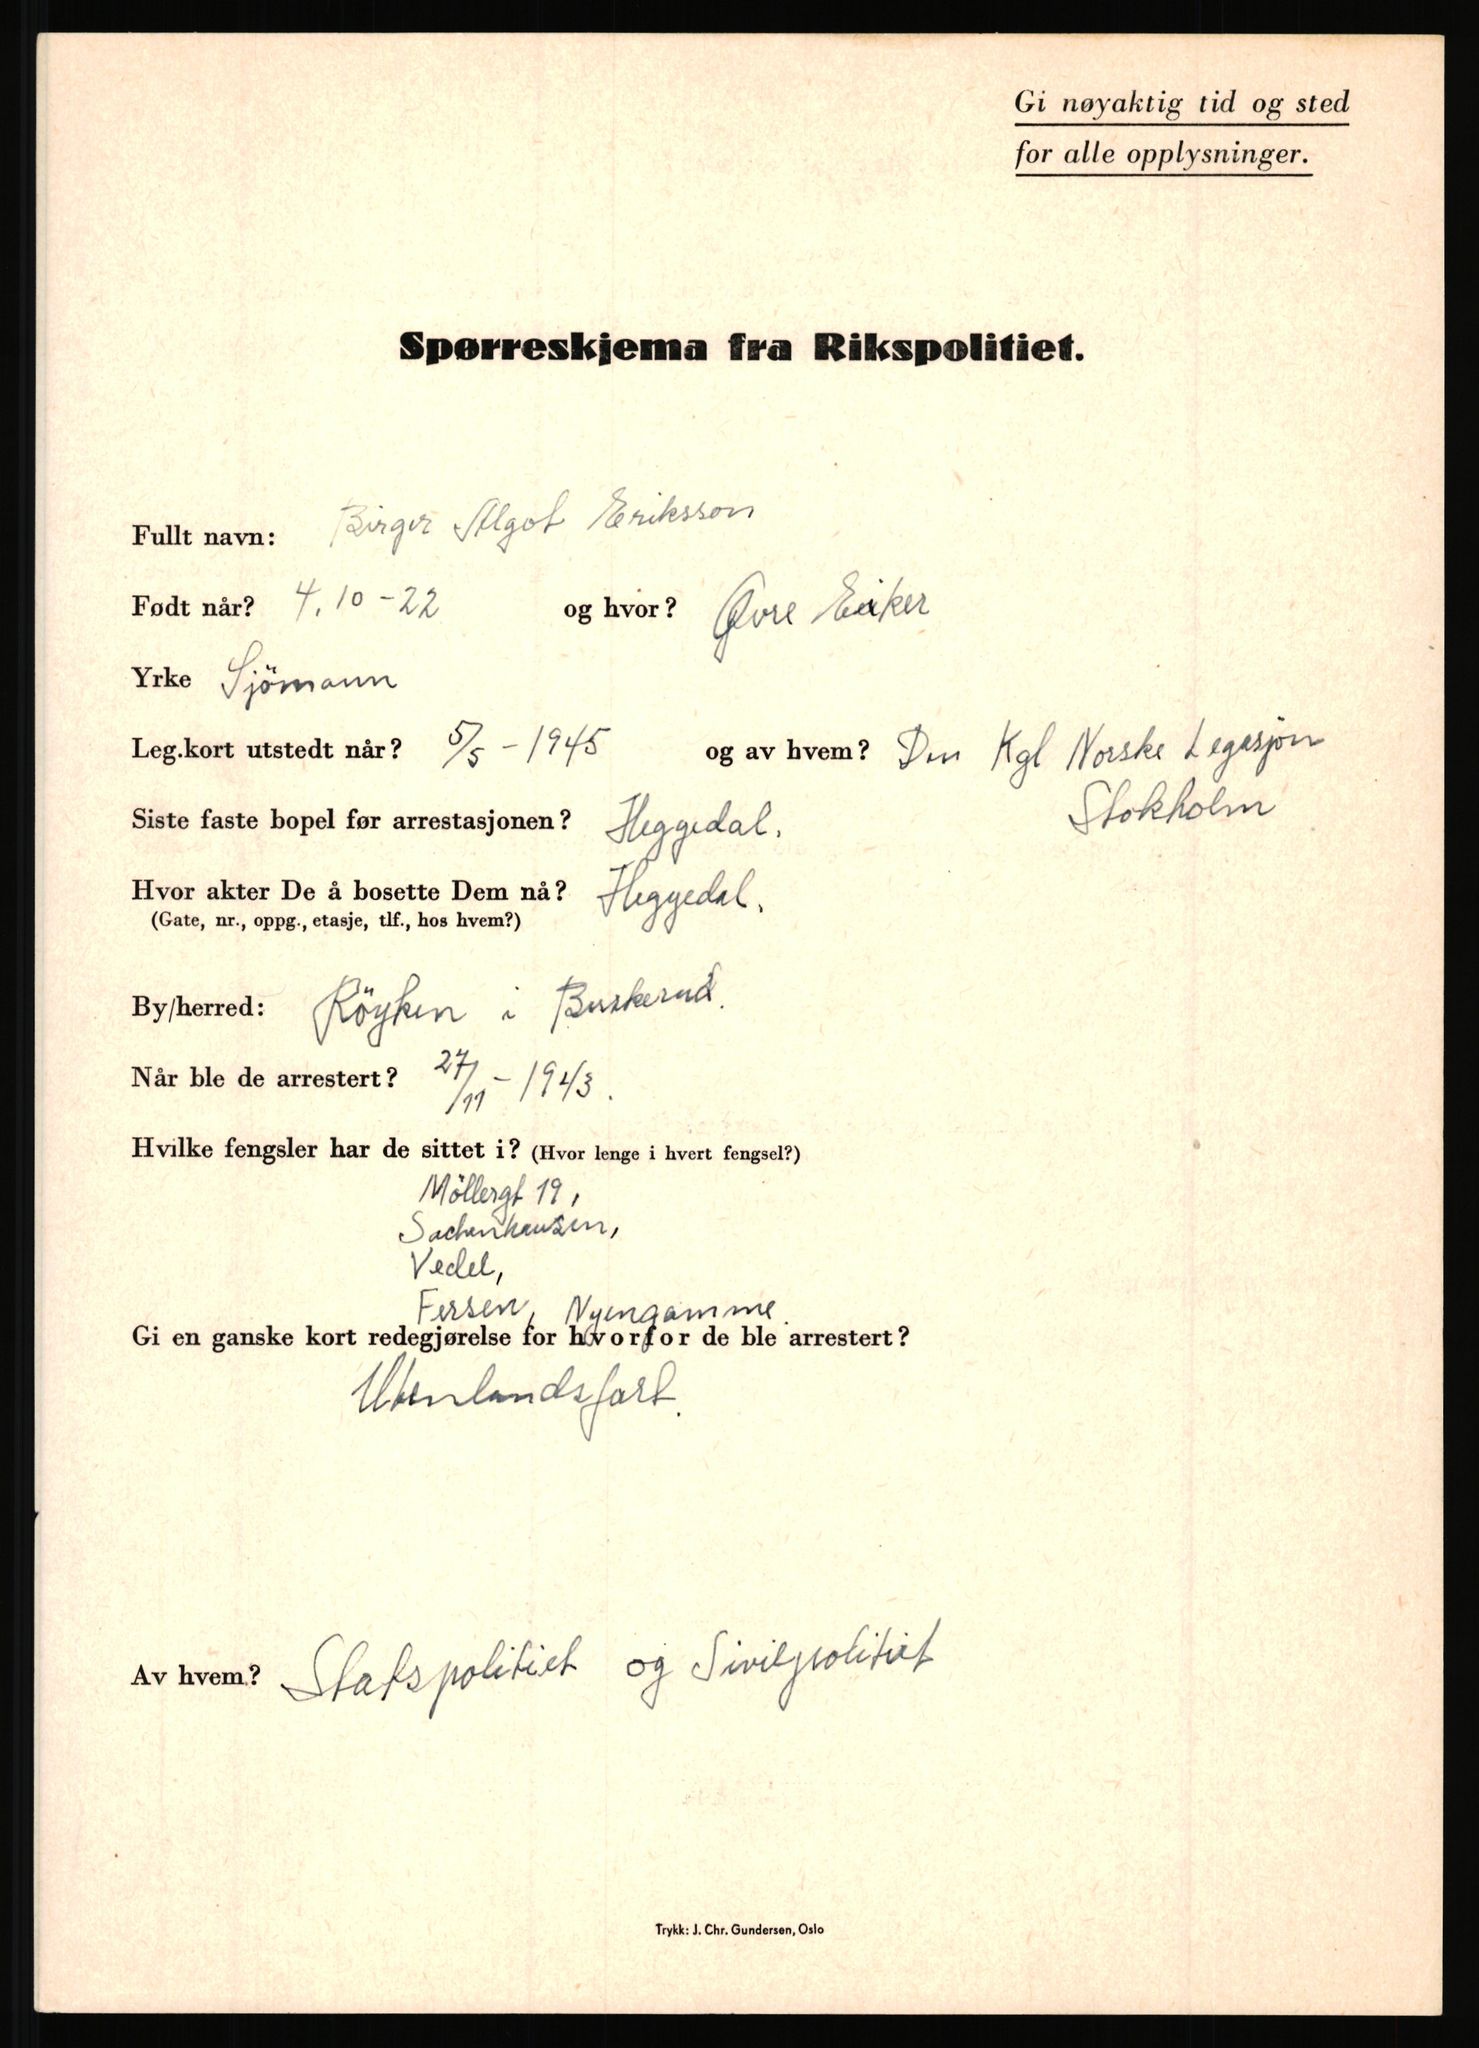 Gi nøyaktig tid og sted
for alle opplysninger.
Spørreskjema fra Rikspolitiet.
Fullt navn: Birger Algot Eriksson
Født når? 4.10-22 og hvor? Øvre Eiker
Yrke Sjömann
Leg.kort utstedt når? 5/5-1945 og av hvem? Den Kgl Norske Legasjon
Stokholm
Siste faste bopel før arrestasjonen? Heggedal.
Hvor akter De å bosette Dem nå? Heggedal.
(Gate, nr., oppg., etasje, tlf., hos hvem?)
By/herred: Röyken i Buskerud.
Når ble de arrestert? 27/11-1943.
Hvilke fengsler har de sittet i? (Hvor lenge i hvert fengsel?)
Möllergt 19,
Sachenhausen,
Vedel,
Fersen, Nyengamme.
Gi en ganske kort redegjørelse for hvorfor de ble arrestert?
Utenlandsfart.
Av hvem? Statspolitiet og Sivilpolitiet
Trykk: J. Chr. Gundersen, Oslo